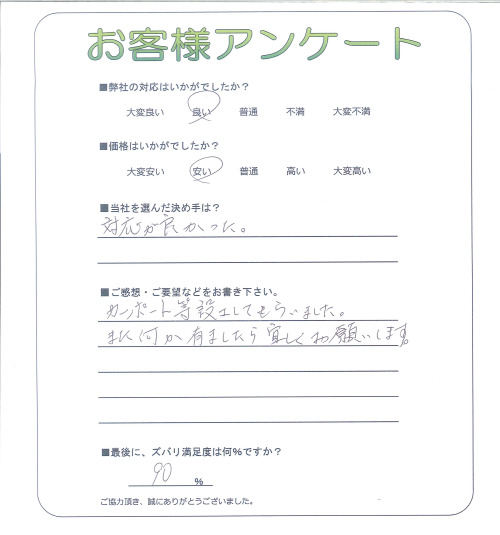 お客様アンケート
■弊社の対応はいかがでしたか？
大変良い 良い 普通 不満 大変不満
■価格はいかがでしたか？
大変安い 安い 普通 高い 大変高い
■当社を選んだ決め手は？
対応が良かった。
■ご感想・ご要望などをお書き下さい。
カーポート等設工してもらいました。
また何か有ましたら宜しくお願いします。
■最後に、ズバリ満足度は何%ですか？
90 %
ご協力頂き、誠にありがとうございました。